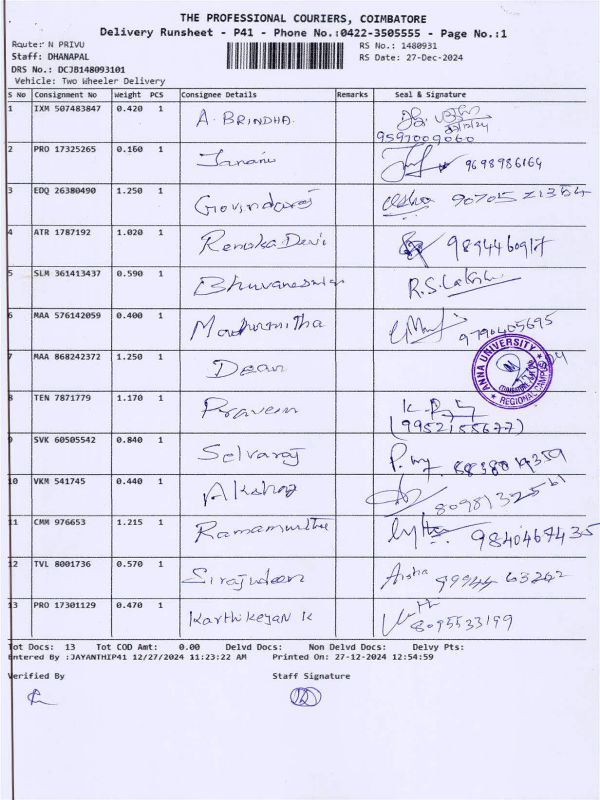 THE PROFESSIONAL COURIERS, COIMBATORE
Delivery Runsheet - P41 - Phone No.:0422-3505555 - Page No.:1
Route: N PRIVU RS No.: 1480931
Staff: DHANAPAL RS Date: 27-Dec-2024
DRS No.: DCJB148093101
Vehicle: Two Wheeler Delivery
S No Consignment No Weight PCS Consignee Details Remarks Seal & Signature
1 IXM 507483847 0.420 1 A. BRINDHA
9597009060
2 PRO 17325265 0.160 1 Janani 9698986164
3 EDQ 26380490 1.250 1 Govindaraj Usha 90705 21364
4 ATR 1787192 1.020 1 Renuka Devi 9894460917
5 SLM 361413437 0.590 1 Bhuvaneswari R.S. Lakshmi
6 MAA 576142059 0.400 1 Madhumitha 9790405695
7 MAA 868242372 1.250 1 Dean ANNA UNIVERSITY REGIONAL CAMPUS
8 TEN 7871779 1.170 1 Praveen
(9952155677)
9 SVK 60505542 0.840 1 Selvaraj 8838019359
10 VKM 541745 0.440 1 Akshay 8098132561
11 CMM 976653 1.215 1 Ramamurthy 9840467435
12 TVL 8001736 0.570 1 Sirajudeen Aisha 99944 63242
13 PRO 17301129 0.470 1 Karthikeyan K 8095533199
Tot Docs: 13 Tot COD Amt: 0.00 Delvd Docs: Non Delvd Docs: Delvy Pts:
Entered By :JAYANTHIP41 12/27/2024 11:23:22 AM Printed On: 27-12-2024 12:54:59
Verified By Staff Signature